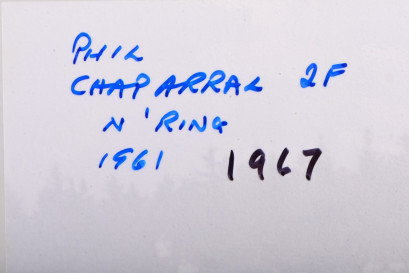 PHIL
CHAPARRAL 2F
N'RING
1961 1967